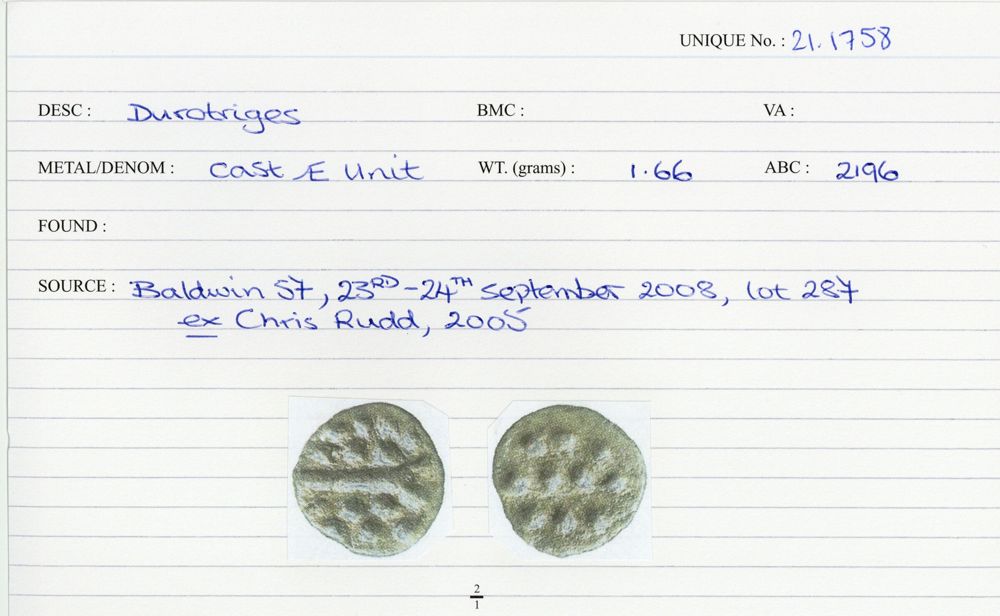 UNIQUE No. : 21.1758
DESC : Durotriges BMC : VA :
METAL/DENOM : Cast Æ Unit WT. (grams) : 1.66 ABC : 2196
FOUND :
SOURCE : Baldwin 57, 23RD-24TH September 2008, lot 287
ex Chris Rudd, 2005
2
1